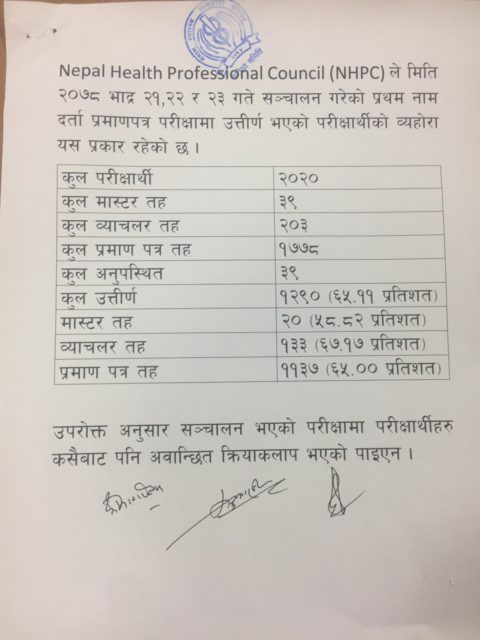 Nepal Health Professional Council (NHPC) ले मिति
२०७८ भाद्र २१,२२ र २३ गते सञ्चालन गरेको प्रथम नाम
दर्ता प्रमाणपत्र परीक्षामा उत्तीर्ण भएको परीक्षार्थीको व्यहोरा
यस प्रकार रहेको छ ।
कुल परीक्षार्थी २०२०
कुल मास्टर तह ३९
कुल ब्याचलर तह २०३
कुल प्रमाण पत्र तह १७७८
कुल अनुपस्थित ३९
कुल उत्तीर्ण १२९० (६५.११ प्रतिशत)
मास्टर तह २० (५८.८२ प्रतिशत)
ब्याचलर तह १३३ (६७.१७ प्रतिशत)
प्रमाण पत्र तह ११३७ (६५.०० प्रतिशत)
उपरोक्त अनुसार सञ्चालन भएको परीक्षामा परीक्षार्थीहरु
कसैबाट पनि अवान्छित क्रियाकलाप भएको पाइएन ।